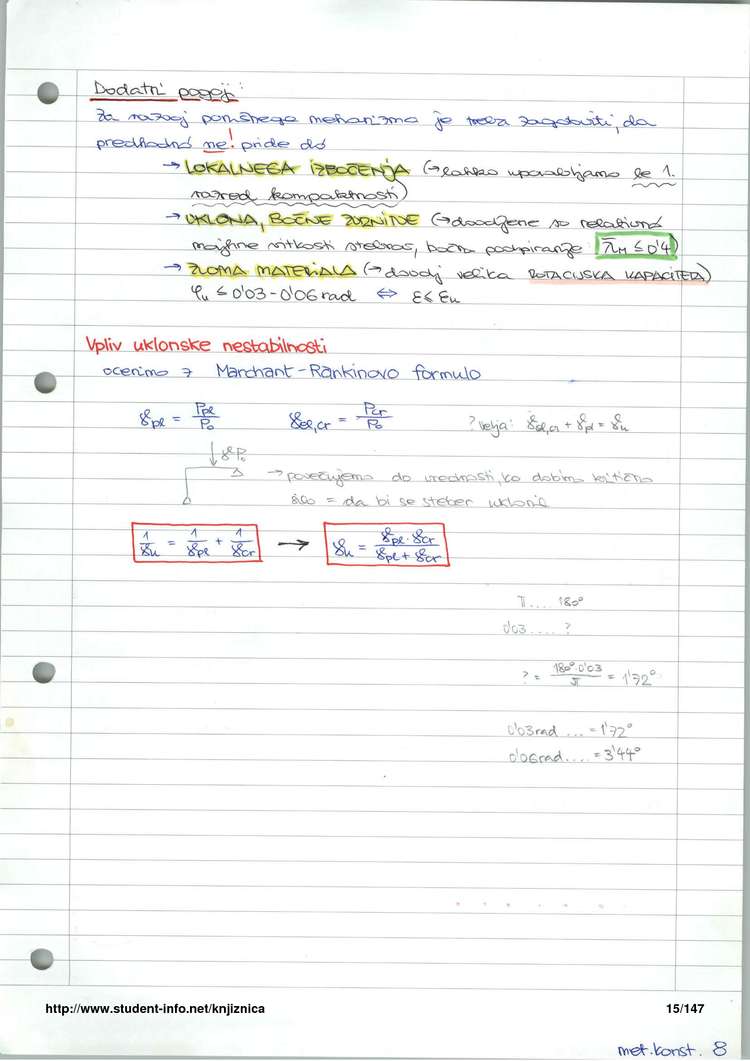 Dodatni pogoji:
Za razvoj porušnega mehanizma je treba zagotoviti, da
predhodno ne! pride do
→ LOKALNEGA IZBOČENJA (→ lahko uporabljamo le 1.
razred kompaktnosti)
→ UKLONA, BOČNE ZVRNITVE (→ dovoljene so relativno
majhne vitkosti stebrov, bočno podpiranje λ̄M ≤ 0'4)
→ ZLOMA MATERIALA (→ dovolj velika ROTACIJSKA KAPACITETA)
φu ≤ 0'03 - 0'06 rad ⇔ ε ≤ εu
Vpliv uklonske nestabilnosti
ocenimo z Marchant-Rankinovo formulo
γpl = Ppl/P0 γel,cr = Pcr/P0 ? velja: γel,cr + γpl = γu
γP0
→ povečujemo do vrednosti, ko dobimo kritično
silo = da bi se steber uklonil
1/γu = 1/γpl + 1/γcr → γu = γpl · γcr / γpl + γcr
π .... 180°
0'03 .... ?
? = 180° · 0'03 / π = 1'72°
0'03 rad ... = 1'72°
0'06 rad .... = 3'44°
http://www.student-info.net/knjiznica 15/147
met.konst. 8